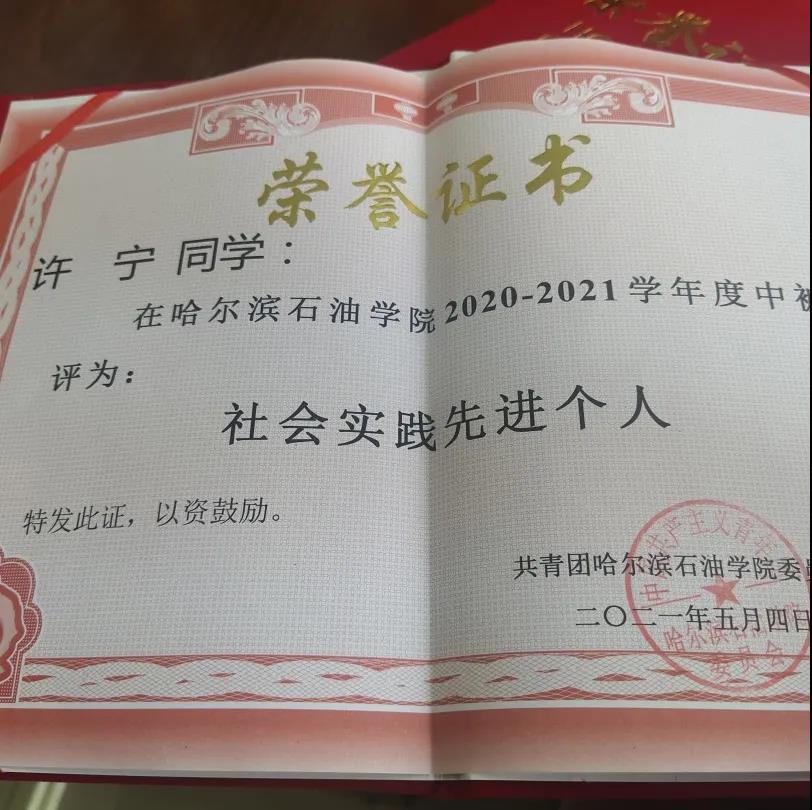 荣誉证书
许 宁 同学：
在哈尔滨石油学院2020-2021学年度中被
评为：
社会实践先进个人
特发此证，以资鼓励。
共青团哈尔滨石油学院委员
二〇二一年五月四日
中国共产主义青年
哈尔滨石油学院
委员会